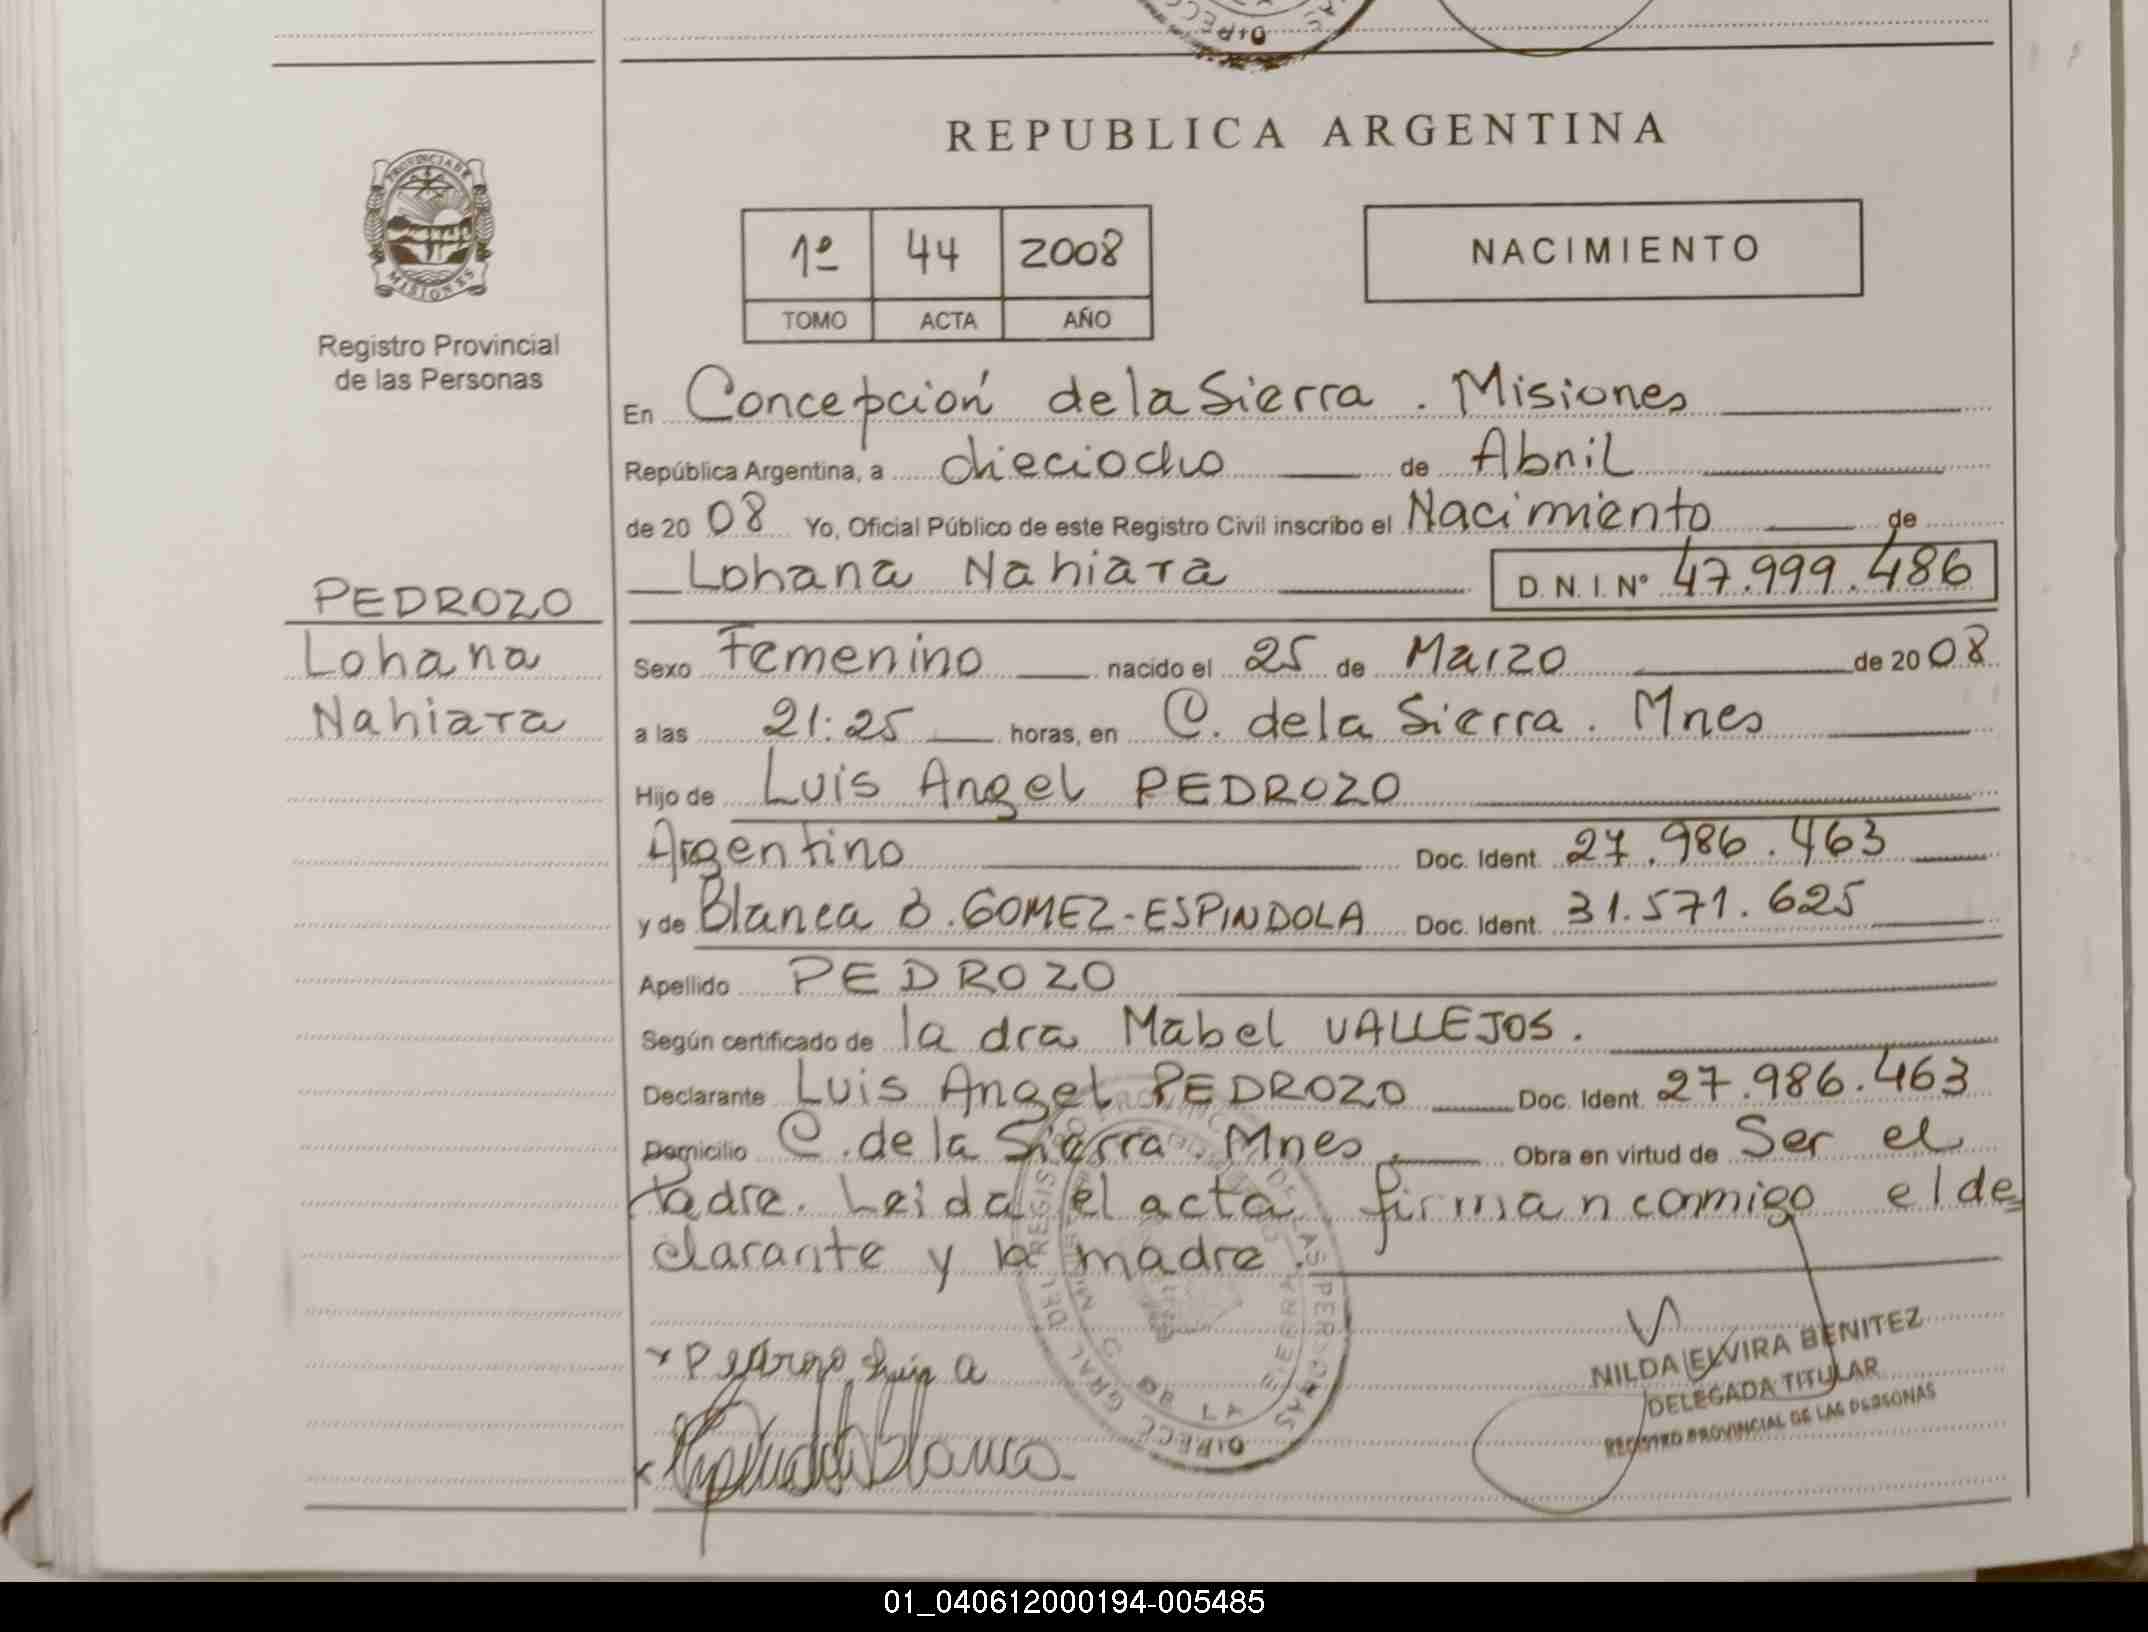 REPUBLICA ARGENTINA
PROVINCIA DE
MISIONES
Registro Provincial
de las Personas
1º 44 2008
TOMO ACTA AÑO
NACIMIENTO
En Concepción de la Sierra . Misiones
República Argentina, a dieciocho de Abril
de 20 08 Yo, Oficial Público de este Registro Civil inscribo el Nacimiento de
Lohana Nahiara D. N. I. Nº 47.999.486
PEDROZO
Lohana
Nahiara
Sexo Femenino nacido el 25 de Marzo de 20 08
a las 21:25 horas, en C. de la Sierra . Mnes
Hijo de Luis Angel PEDROZO
Argentino Doc. Ident. 27.986.463
y de Blanca B. GOMEZ-ESPINDOLA Doc. Ident. 31.571.625
Apellido PEDROZO
Según certificado de la dra Mabel VALLEJOS.
Declarante Luis Angel PEDROZO Doc. Ident. 27.986.463
Domicilio C. de la Sierra. Mnes Obra en virtud de Ser el
padre. Leida el acta firman conmigo el de=
clarante y la madre.
x Pedrozo Luis A
x Blanca
NILDA ELVIRA BENITEZ
DELEGADA TITULAR
REGISTRO PROVINCIAL DE LAS PERSONAS
01_040612000194-005485